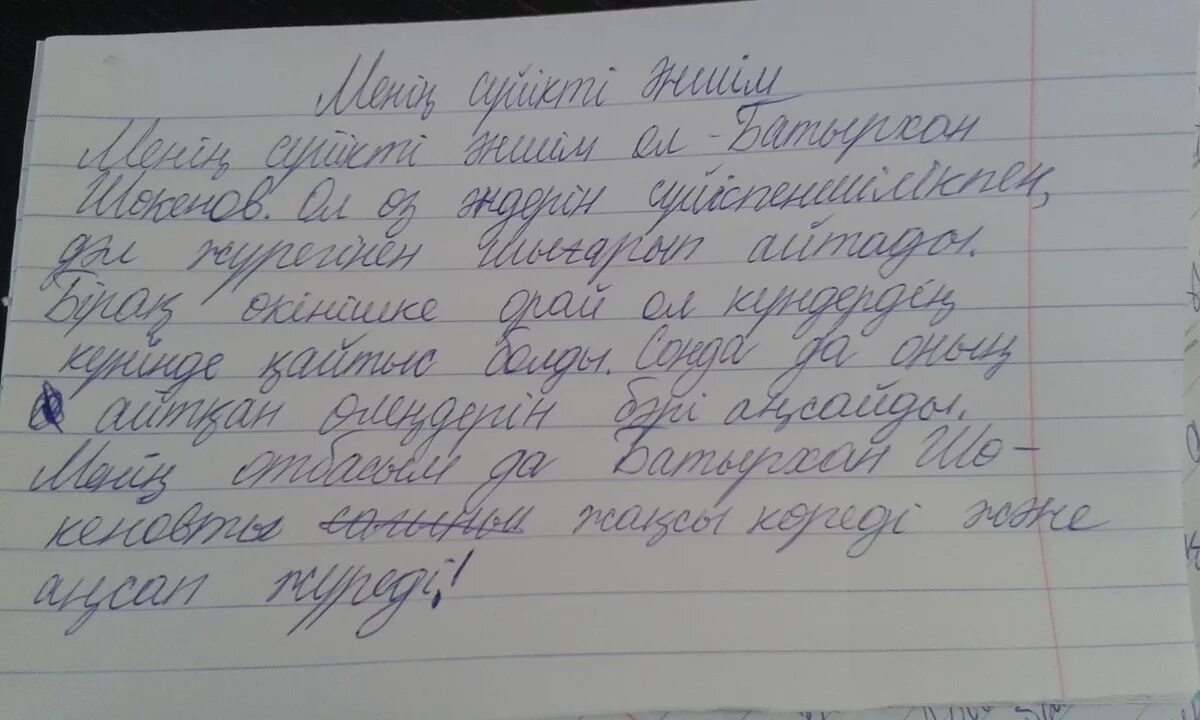 Менің сүйікті әншім
Менің сүйікті әншім ол - Батырхан
Шокенов. Ол өз әндерін сүйіспеншілікпен,
дәл жүрегінен шығарып айтады.
Бірақ өкінішке орай ол күндердің
күнінде қайтыс болды. Сонда да оның
айтқан өлеңдерін бәрі аңсайды.
Менің отбасым да Батырхан Шо-
кеновты жақсы көреді және
аңсап жүреді!